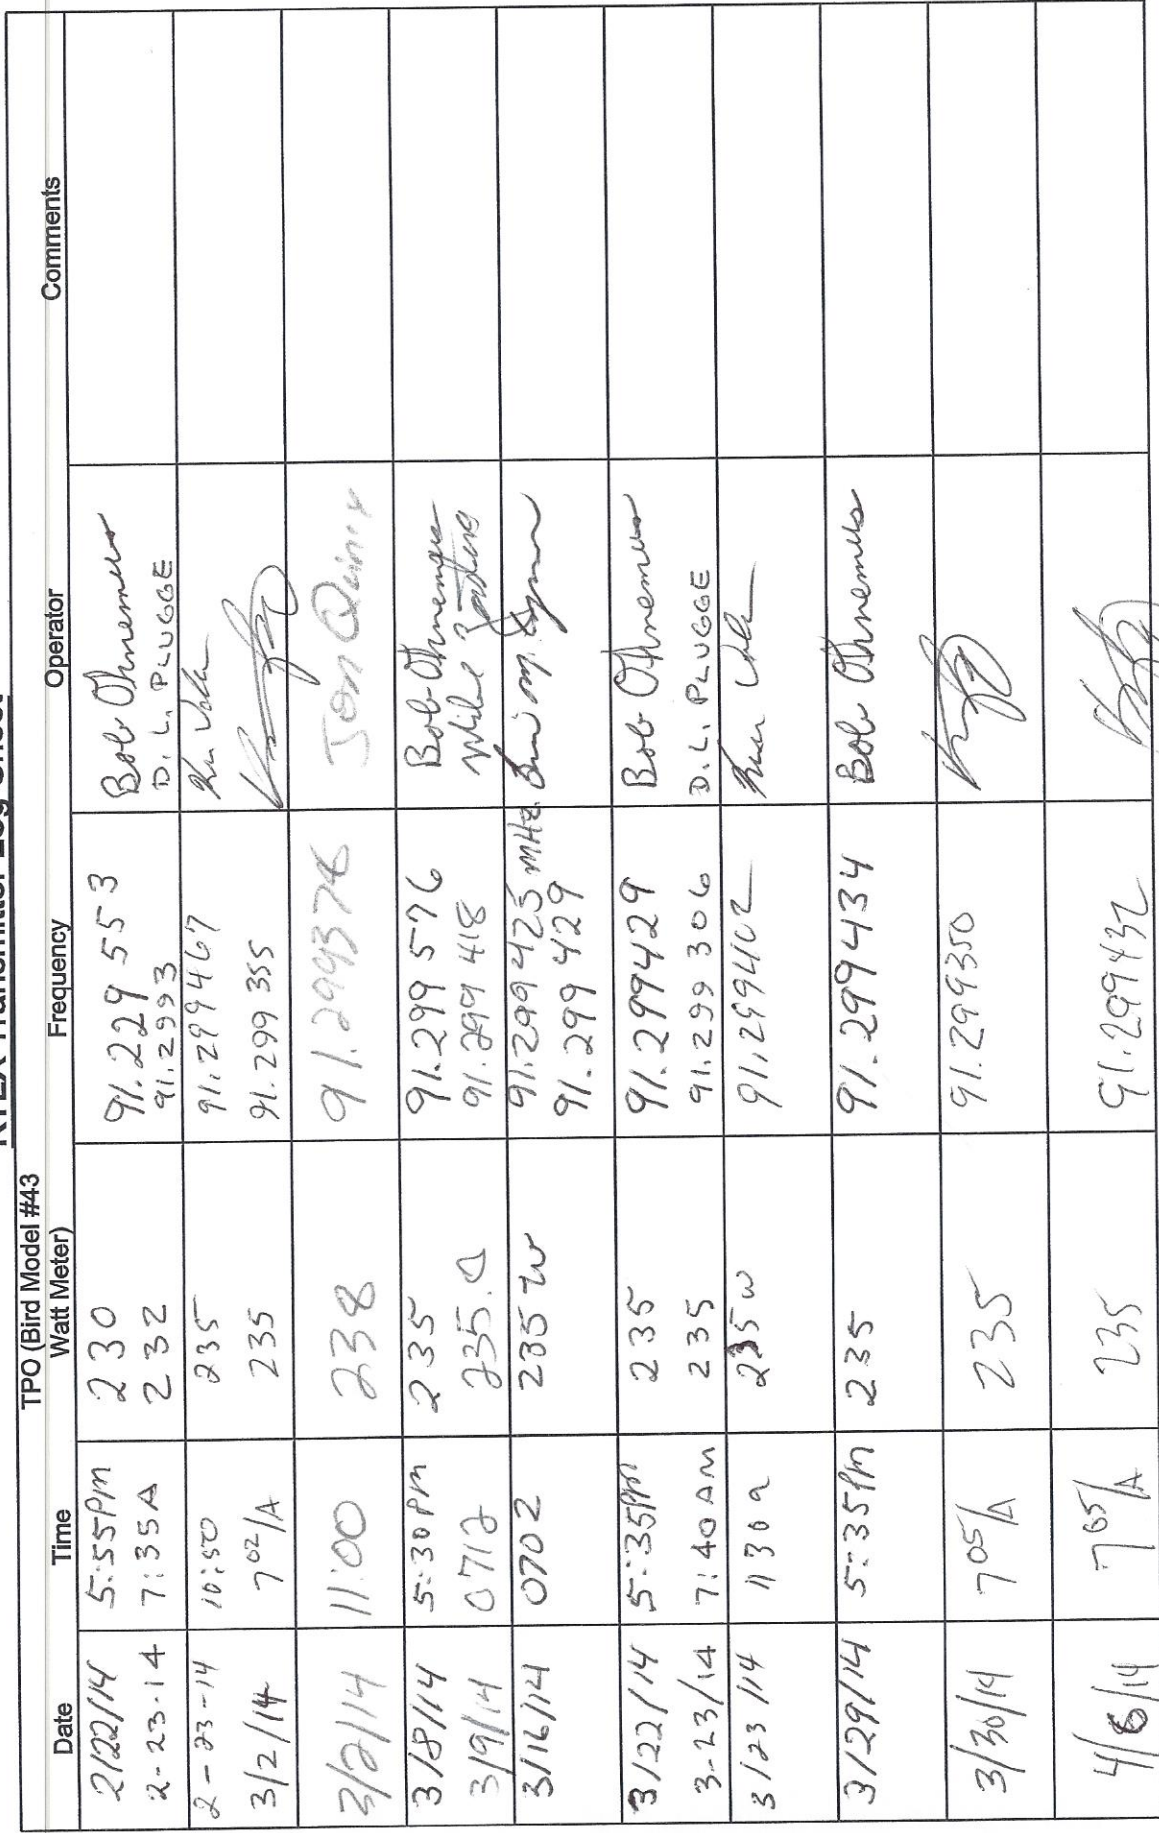 TPO (Bird Model #43
Date Time Watt Meter) Frequency Operator Comments
2/22/14 5:55PM 230 91.229 553 Bob Ohnemus
2-23-14 7:35A 232 91.2993 D.L. PLUGGE
2-23-14 10:50 235 91.299467
3/2/14 7 02/A 235 91.299 355
3/2/14 11:00 238 91.299376 Jon Quinn
3/8/14 5:30PM 235 91.299 576 Bob Ohnemus
3/9/14 0712 235.0 91.299 418
3/16/14 0702 235 W 91.299 425 MHz
91.299 429
3/22/14 5:35PM 235 91.299429 Bob Ohnemus
3-23/14 7:40 AM 235 91.299 306 D.L. PLUGGE
3/23/14 1130a 235 w 91.299402
3/29/14 5:35PM 235 91.299434 Bob Ohnemus
3/30/14 7 05/A 235 91.299350
4/6/14 7 05/A 235 91.299432